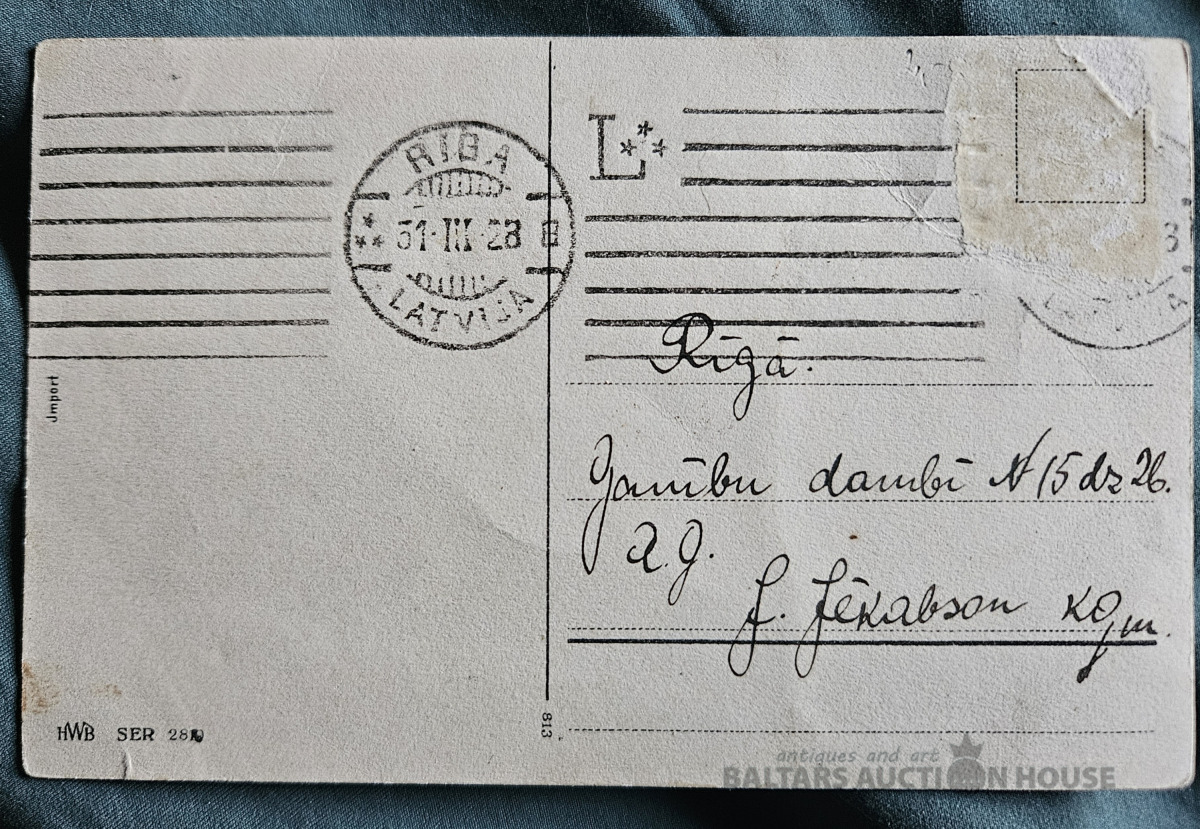 RIGA
31·III·28 B
LATVIJA
L
3
Jmport
Rīgā.
Ganību dambī N 15 dz 26.
A. J. 
J. Jēkabson kgm.
HWB SER 28
813
antiques and art
BALTARS AUCTION HOUSE